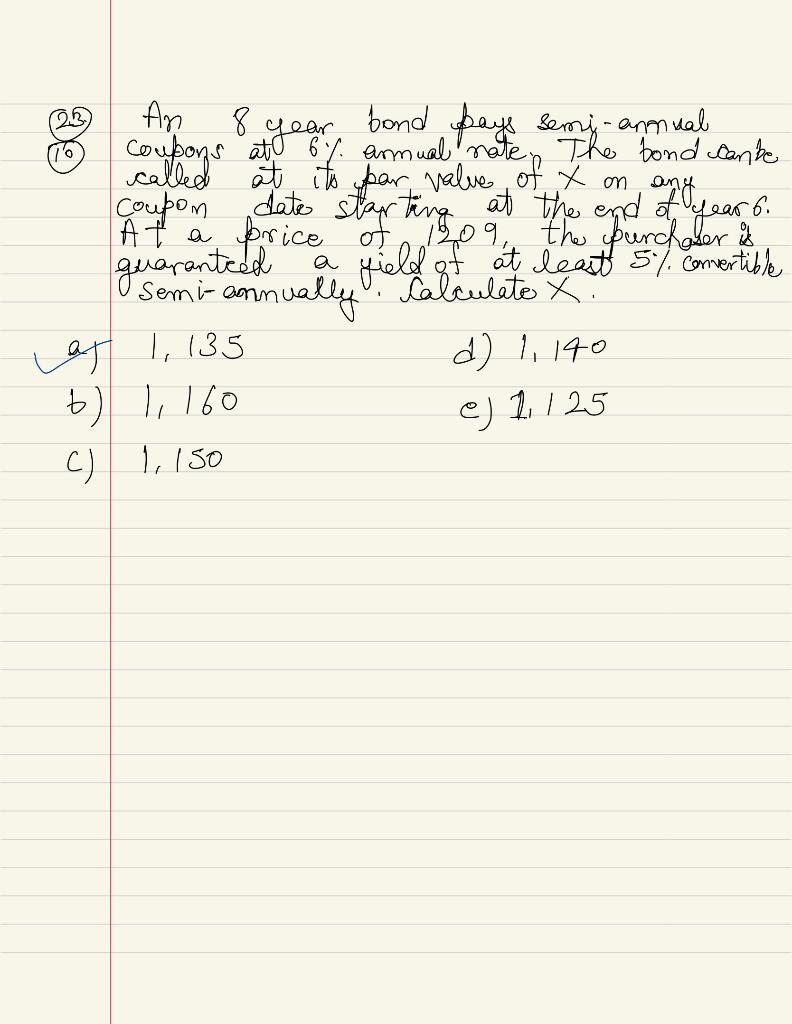 23 An 8 year bond pays semi-annual
10 coupons at 6% annual rate. The bond can be
called at its par value of X on any
coupon date starting at the end of year 6.
At a price of 1209, the purchaser is
guaranteed a yield of at least 5% convertible
semi-annually. Calculate X.
a) 1,135 d) 1,140
b) 1,160 e) 1,125
c) 1,150